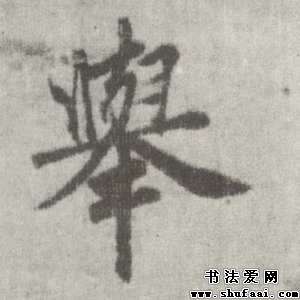 舉
书法爱网
www.shufaai.com